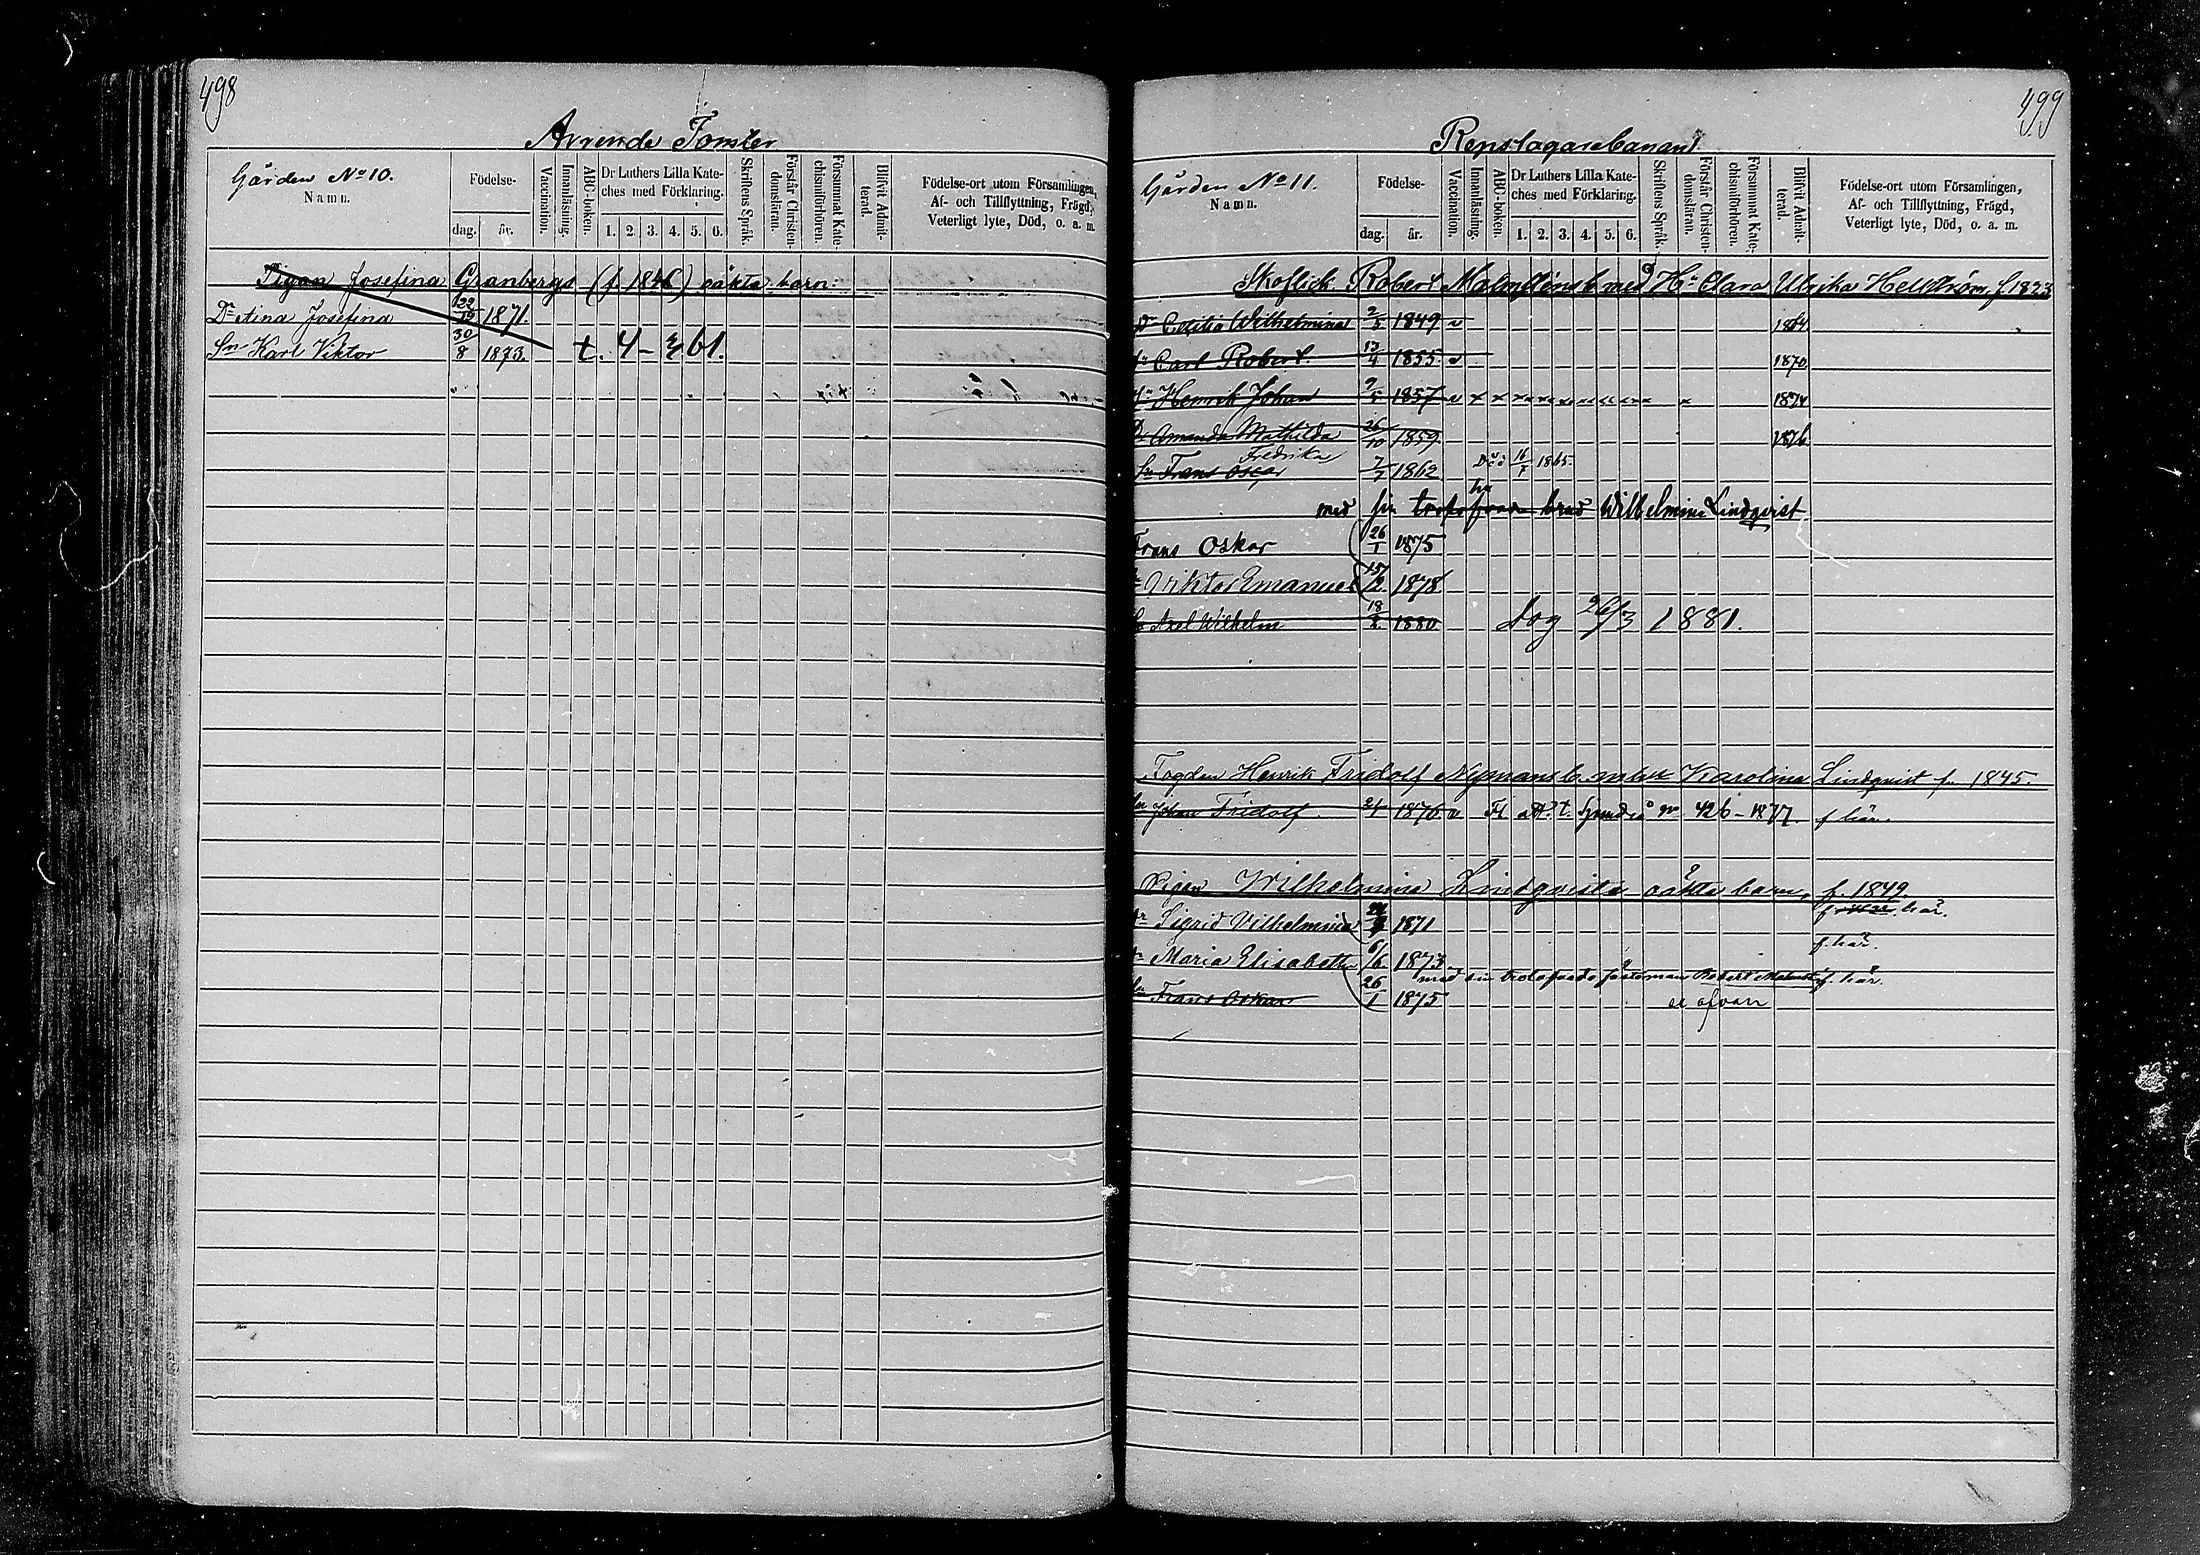 498
Arrende Tomter
Gården No 10.
Namn.
Födelse-
dag. år.
Vaccination.
Innanläsning.
ABC-boken.
Dr Luthers Lilla Kate-
ches med Förklaring.
1. 2. 3. 4. 5. 6.
Skriftens Språk.
Förstår Christen-
domsläran.
Försummat Kate-
chismiförhören.
Blifvit Admit-
terad.
Födelse-ort utom Församlingen,
Af- och Tillflyttning, Frägd,
Veterligt lyte, Död, o. a. m.
Pigan Josefina Granbergs (f. 1846) oäkta barn:
Dr Aina Josefina 22/12 1871.
Sn Karl Viktor 30/8 1873. t. 4
499
Repslagarebanan
Gården No 11.
Namn.
Födelse-
dag. år.
Vaccination.
Innanläsning.
ABC-boken.
Dr Luthers Lilla Kate-
ches med Förklaring.
1. 2. 3. 4. 5. 6.
Skriftens Språk.
Förstår Christen-
domsläran.
Försummat Kate-
chismiförhören.
Blifvit Admit-
terad.
Födelse-ort utom Församlingen,
Af- och Tillflyttning, Frägd,
Veterligt lyte, Död, o. a. m.
Skoflick. Robert Malmsténs b. med Hu Clara Ulrika Hellström f. 1823
Dr Cecilia Wilhelmina 2/5 1849 v 1864
Sn Carl Robert. 13/4 1855 v 1870
Sn Henrik Johan 9/5 1857 v x x x x x x x x x x 1874
Dr Amanda Mathilda 26/10 1859 1876
Fredrika
Sn Frans Oscar 7/7 1862 Död 16/5 1865.
med sin trolofvade brud Wilhelmina Lindqvist
Frans Oskar 26/1 1875
Sn Viktor Emanuel 15/12 1878
So Axel Wilhelm 18/8 1880 dog 26/3 1881.
Fogden Henrik Fridolf Nymans b. m. hu Karolina Lindqvist f. 1845.
Sn Johan Fridolf 1876 v Fl. att. t. 426 - 1877. f. här.
Pigan Wilhelmina Lindqvists oäkta barn, f. 1849
Dr Sigrid Vilhelmina 1871 f. här.
Dr Maria Elisabeth 6/6 1873 f. här.
med sin trolofvade fästeman Robert f. här.
Sn Frans Oskar 26/1 1875 se ofvan